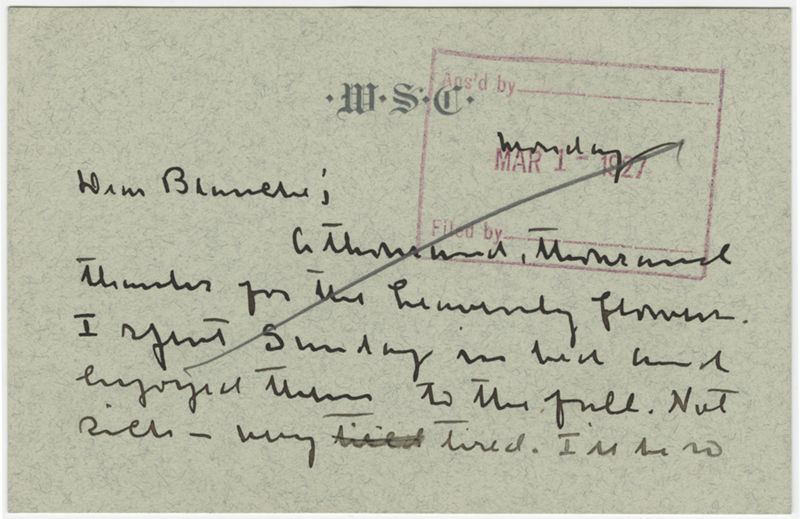 Ans'd by
·W·S·C·
Monday
MAR 1 - 1927
Dear Blanche;
Filed by
A thousand, thousand
thanks for the heavenly flowers.
I spent Sunday in bed and
enjoyed them to the full. Not
sick – very tired tired. I'll be so